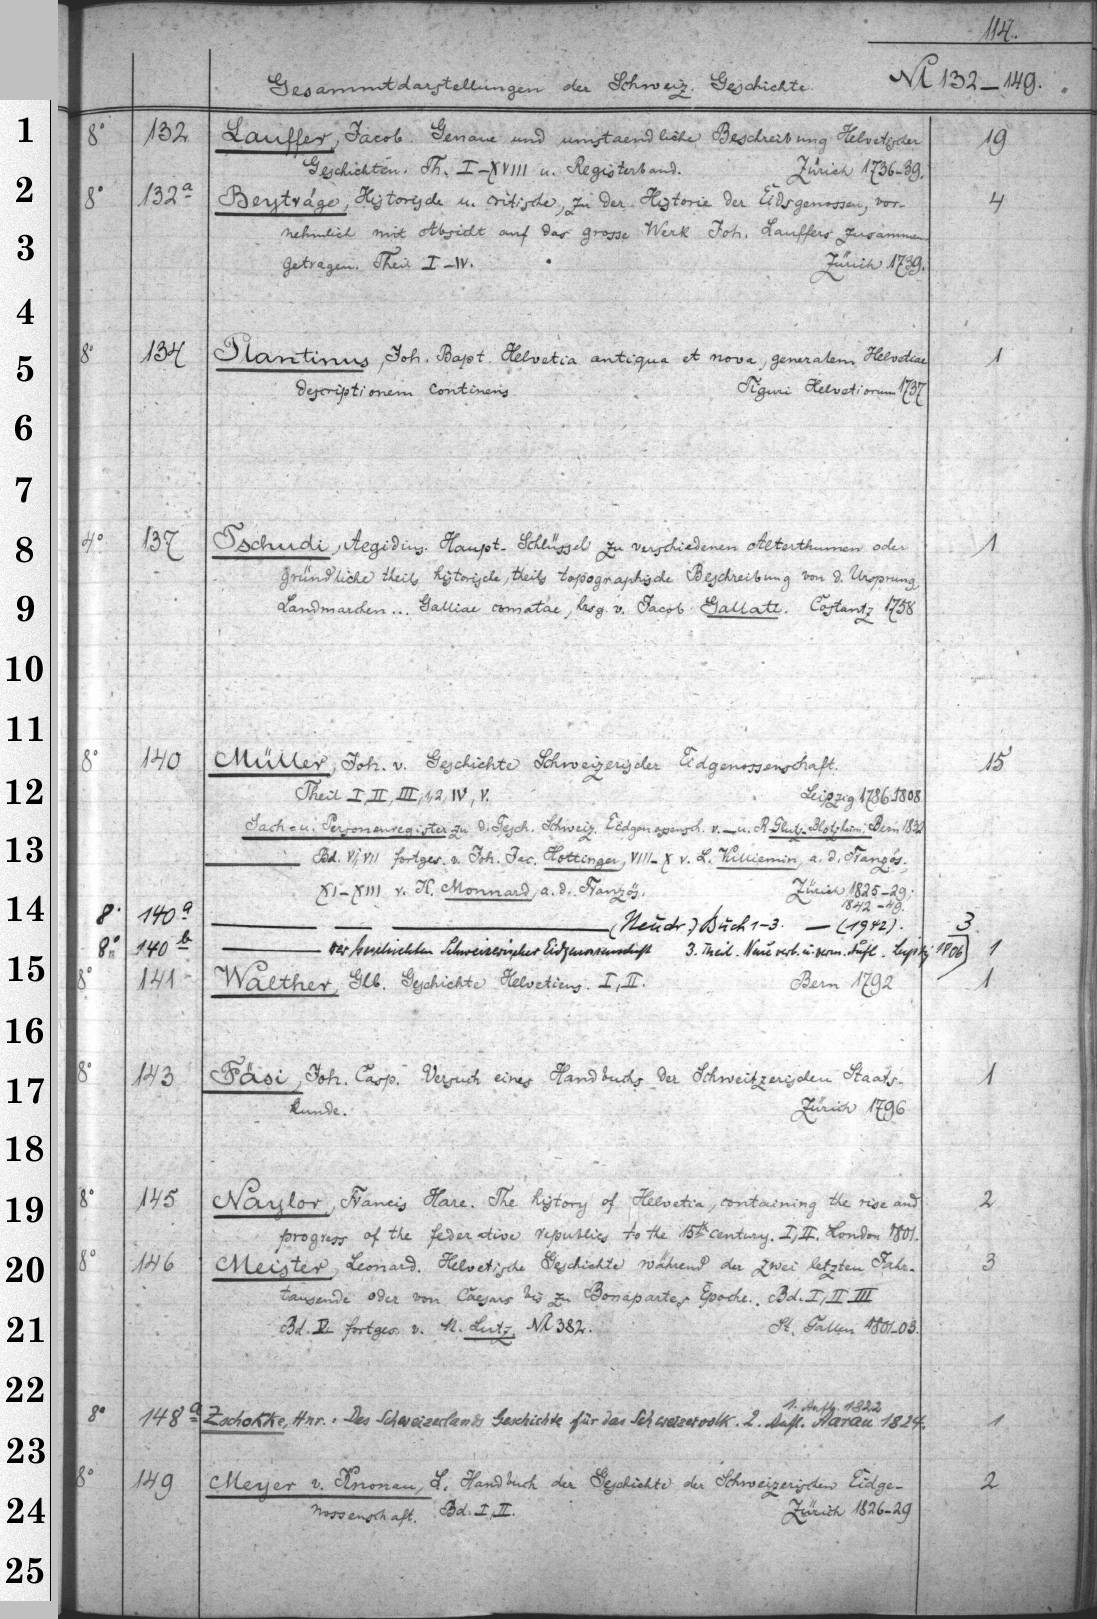 114.
Gesammtdarstellungen der Schweiz. Geschichte. № 132–149.
1
8° 132 Lauffer, Jacob. Genaue und umstaendliche Beschreibung Helvetischer 19
Geschichten. Th. I–XVIII u. Registerband. Zürich 1736–39.
2
8° 132a Beyträge, Historische u. critische, zu der Historie der Eidsgenossen, vor- 4
nehmlich mit Absicht auf das grosse Werk Joh. Lauffers zusammen
3
getragen. Theil I–IV. Zürich 1739.
4
8° 134 Plantinus, Joh. Bapt. Helvetia antiqua et nova, generalem Helvetiae 1
5
descriptionem continens Tiguri Helvetiorum 1737
6
7
4° 137 Tschudi, Aegidius. Haupt-Schlüssel zu verschiedenen Alterthumen oder 1
8
gründliche theils historische, theils topographische Beschreibung von d. Ursprung,
9
Landmarchen... Galliae comatae, hrsg. v. Jacob Gallati. Costantz 1758
10
11
8° 140 Müller, Joh. v. Geschichte Schweizerischer Eidgenossenschaft. 15
12
Theil I, II, III,1,2, IV, V. Leipzig 1786–1808
Sach- u. Personenregister zu d. Gesch. Schweiz. Eidgenossensch. v. — u. R. Glutz-Blotzheim. Bern 1832
13
Bd. VI, VII fortges. v. Joh. Jac. Hottinger, VIII–X v. L. Vulliemin, a. d. Französ.,
XI–XIII v. K. Monnard, a. d. Französ. Zürich 1825–29;
1842–49.
14
8° 140a — — — (Neudr.) Buch 1–3. — (1942). 3
8° 140b — Der Geschichten Schweizerischer Eidgenossenschaft 3. Theil. Neue verb. u. verm. Aufl. Leipzig 1806) 1
15
8° 141 Walther, Glb. Geschichte Helvetiens. I, II. Bern 1792 1
16
8° 143 Fäsi, Joh. Casp. Versuch eines Handbuchs der Schweitzerischen Staats- 1
17
kunde. Zürich 1796
18
8° 145 Naylor, Francis Hare. The history of Helvetia, containing the rise and 2
19
progress of the federative republics to the 15th century. I, II. London 1801.
8° 146 Meister, Leonard. Helvetische Geschichte während der zwei letzten Jahr- 3
20
tausende oder von Caesars bis zu Bonapartes Epoche. Bd. I, II III
21
Bd. IV fortges. v. M. Lutz, № 382. St. Gallen 1801–03.
22
1. Aufl. 1822
8° 148a Zschokke, Hnr. Des Schweizerlands Geschichte für das Schweizervolk. 2. Aufl. Aarau 1824. 1
23
8° 149 Meyer v. Knonau, L. Handbuch der Geschichte der Schweizerischen Eidge- 2
24
nossenschaft. Bd. I, II. Zürich 1826–29
25